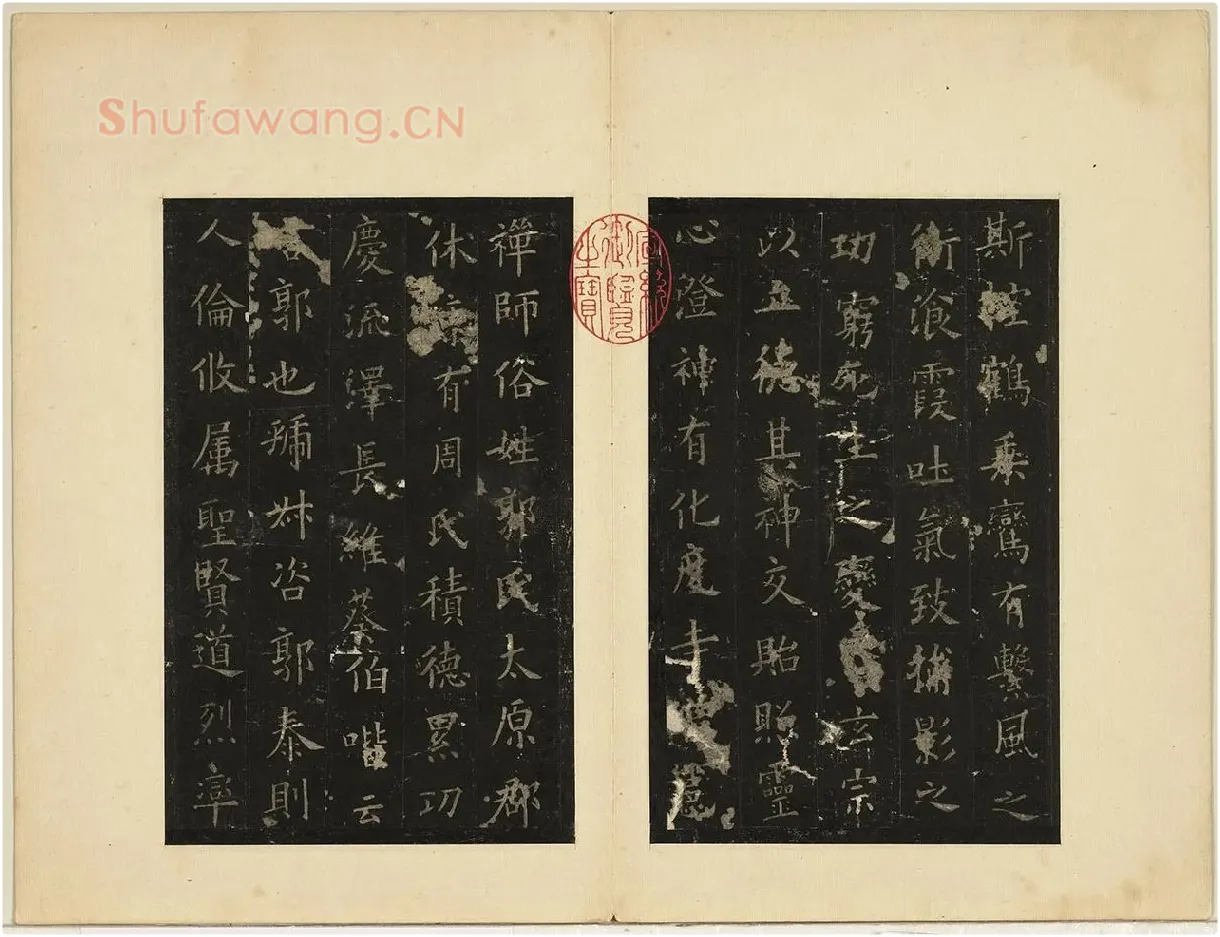 Shufawang.CN
斯控鶴乘鸞有繫風之
術飡霞吐氣致捕影之
功窮死生之變玄宗
以立德其神交貽貺靈
心澄神有化度寺
宣統御覽之寶
禪師俗姓郭氏太原郡
休有周氏積德累功
慶流澤長維蔡伯喈云
郭也虢叔咨郭泰則
人倫攸属聖賢道烈率